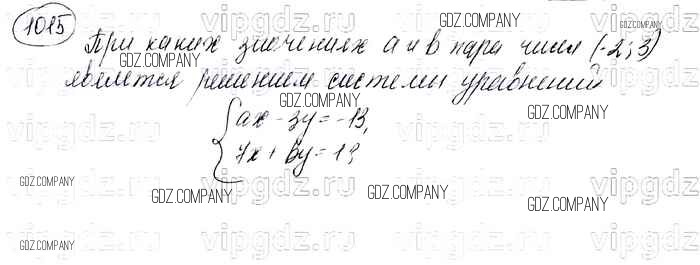 1015
При каких значениях a и в пара чисел (-2; 3)
является решением системы уравнений
ax - 3y = -13,
7x + by = 1
GDZ.COMPANY
GDZ.COMPANY
GDZ.COMPANY
GDZ.COMPANY
GDZ.COMPANY
GDZ.COMPANY
GDZ.COMPANY
GDZ.COMPANY
GDZ.COMPANY
GDZ.COMPANY
GDZ.COMPANY
GDZ.COMPANY
vipgdz.ru
vipgdz.ru
vipgdz.ru
vipgdz.ru
vipgdz.ru
vipgdz.ru
vipgdz.ru
vipgdz.ru
vipgdz.ru
vipgdz.ru
vipgdz.ru
vipgdz.ru